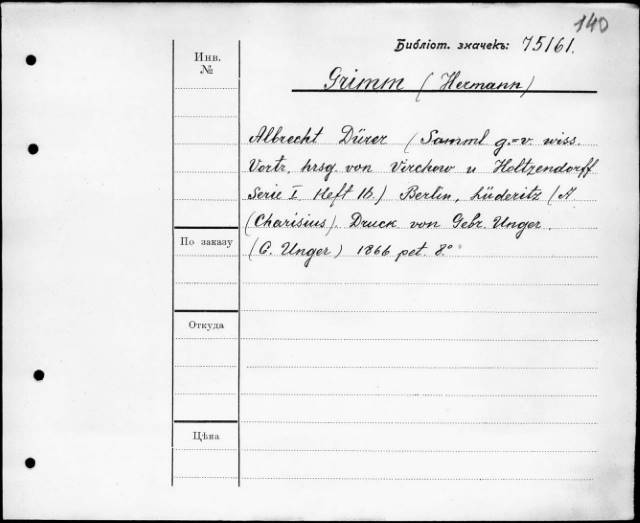 140
Библіот. значекъ: 75161.
Инв.
№
Grimm (Hermann)
Albrecht Dürer (Samml g.-v. wiss.
Vortr. hrsg. von Virchow u Holtzendorff
Serie I. Heft 16.) Berlin, Lüderitz (A
(Charisius). Druck von Gebr. Unger.
(C. Unger) 1866 pet. 8.°
По заказу
Откуда
Цѣна